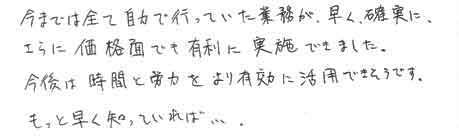 今までは全て自力で行っていた業務が、早く、確実に、
さらに価格面でも有利に実施できました。
今後は時間と労力をより有効に活用できそうです。
もっと早く知っていれば…。